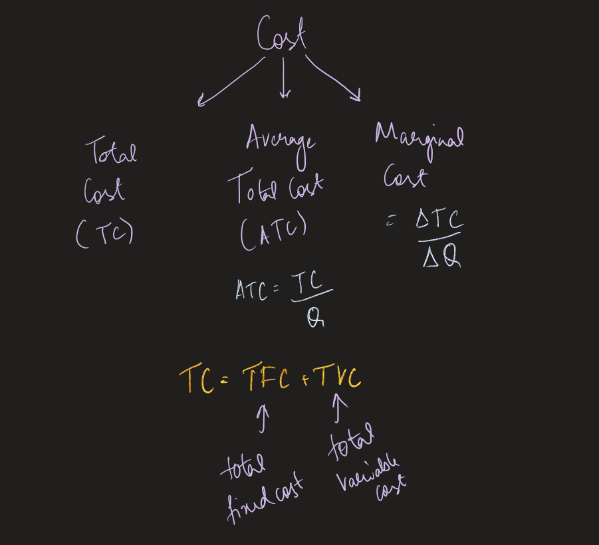 Cost
Total
Cost
(TC)
Average
Total Cost
(ATC)
ATC = TC/Q
Marginal
Cost
= ΔTC/ΔQ
TC = TFC + TVC
total
fixed cost
total
variable
cost